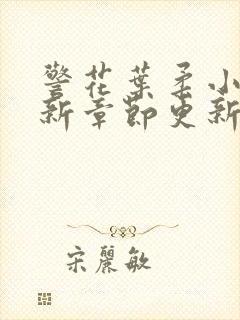 警花葉柔小
新章節更新
宋麗敏